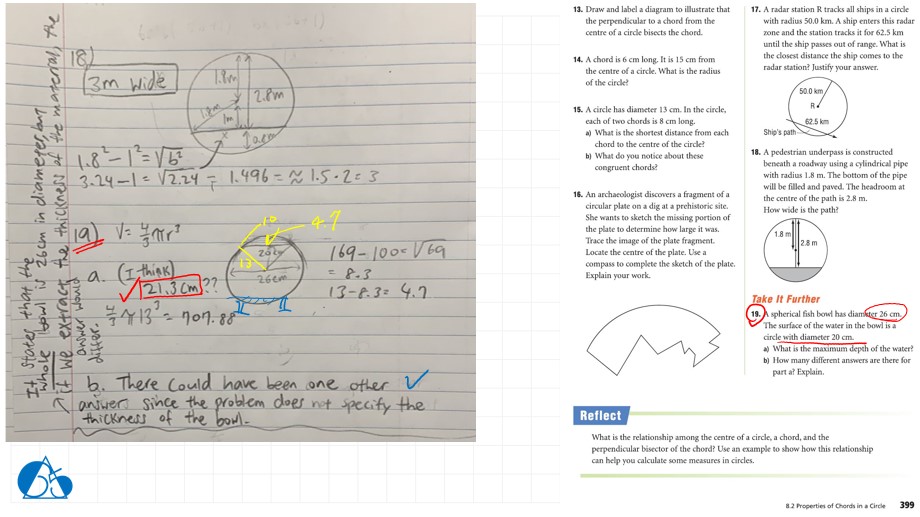 18)
3m wide
1.8m
2.8m
1.8m
1m
x
1.8² – 1² = √b²
3.24 – 1 = √2.24 = 1.496 = ≈ 1.5 · 2 = 3
19) V = 4/3 πr³
a. (I think)
21.3cm ??
4/3 π 13³ = 707.88
10
4.7
13
20cm
26cm
169 – 100 = √69
= 8.3
13 – 8.3 = 4.7
b. There could have been one other
answer since the problem does not specify the
thickness of the bowl.
It states that the
whole bowl is 26cm in diameter, but
if we extract the thickness of the material, the
answer would
differ.
13. Draw and label a diagram to illustrate that
the perpendicular to a chord from the
centre of a circle bisects the chord.
14. A chord is 6 cm long. It is 15 cm from
the centre of a circle. What is the radius
of the circle?
15. A circle has diameter 13 cm. In the circle,
each of two chords is 8 cm long.
a) What is the shortest distance from each
chord to the centre of the circle?
b) What do you notice about these
congruent chords?
16. An archaeologist discovers a fragment of a
circular plate on a dig at a prehistoric site.
She wants to sketch the missing portion of
the plate to determine how large it was.
Trace the image of the plate fragment.
Locate the centre of the plate. Use a
compass to complete the sketch of the plate.
Explain your work.
17. A radar station R tracks all ships in a circle
with radius 50.0 km. A ship enters this radar
zone and the station tracks it for 62.5 km
until the ship passes out of range. What is
the closest distance the ship comes to the
radar station? Justify your answer.
50.0 km
R
62.5 km
Ship's path
18. A pedestrian underpass is constructed
beneath a roadway using a cylindrical pipe
with radius 1.8 m. The bottom of the pipe
will be filled and paved. The headroom at
the centre of the path is 2.8 m.
How wide is the path?
1.8 m
2.8 m
Take It Further
19. A spherical fish bowl has diameter 26 cm.
The surface of the water in the bowl is a
circle with diameter 20 cm.
a) What is the maximum depth of the water?
b) How many different answers are there for
part a? Explain.
Reflect
What is the relationship among the centre of a circle, a chord, and the
perpendicular bisector of the chord? Use an example to show how this relationship
can help you calculate some measures in circles.
8.2 Properties of Chords in a Circle 399